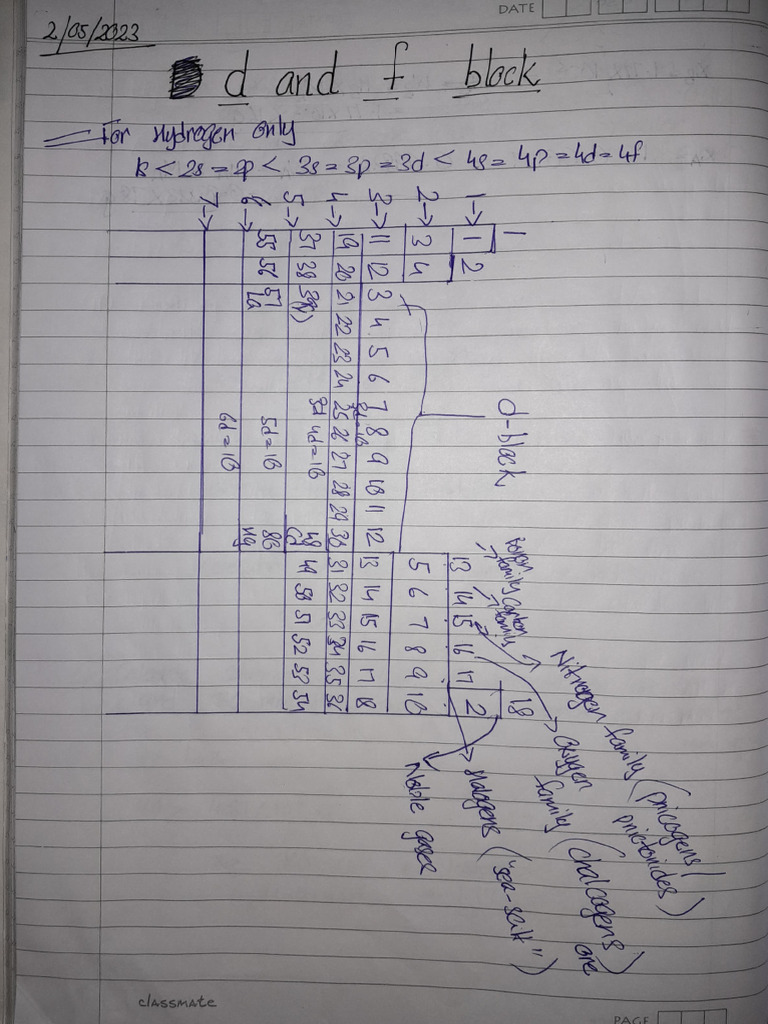 DATE
2/05/2023
d and f block
For Hydrogen only
1s < 2s = 2p < 3s = 3p = 3d < 4s = 4p = 4d = 4f
d-block
1 18
1→ 1 2 13 14 15 16 17 2
2→ 3 4 5 6 7 8 9 10
3→ 11 12 3 4 5 6 7 8 9 10 11 12 13 14 15 16 17 18
3d=10
4→ 19 20 21 22 23 24 25 26 27 28 29 30 31 32 33 34 35 36
5→ 37 38 39(Y) 4d=10 48 Cd 49 50 51 52 53 54
6→ 55 56 57 La 5d=10 80 Hg
7→ 6d=10
Boron family
Carbon family
Nitrogen family (pnicogens/ pnictonides)
Oxygen family (chalcogens) are
Halogens ("sea-salt")
Noble gases
classmate
PAGE